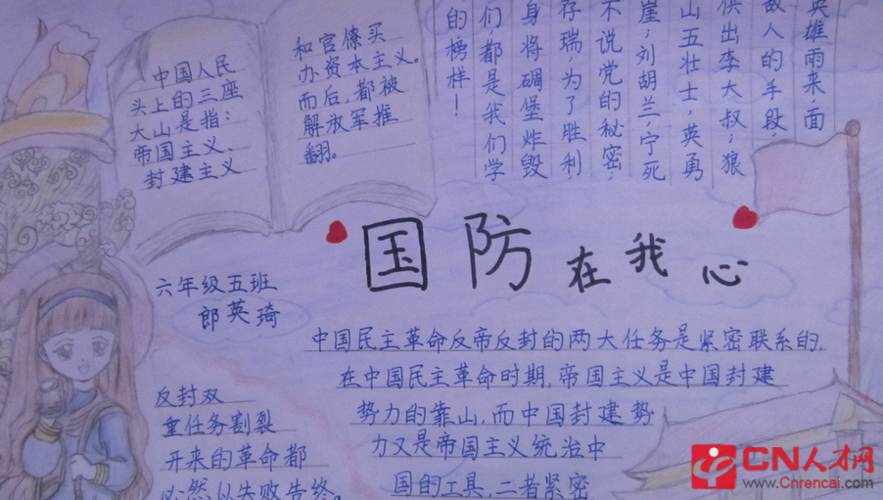 中国人民
头上的三座
大山是指:
帝国主义、
封建主义
和官僚买
办资本主义。
而后,都被
解放军推
翻。
英雄雨来,面
敌人的手段,
供出李大叔;狼
山五壮士,英勇
崖;刘胡兰,宁死
不说党的秘密;
存瑞,为了胜利,
身将碉堡炸毁
们,都是我们学
的榜样!
国防在我心
六年级五班
郎英琦
中国民主革命反帝反封的两大任务是紧密联系的,
在中国民主革命时期,帝国主义是中国封建
势力的靠山,而中国封建势
力又是帝国主义统治中
国的工具,二者紧密
反封双
重任务割裂
开来的革命都
必然以失败告终。
CN人才网
www.Cnrencai.com